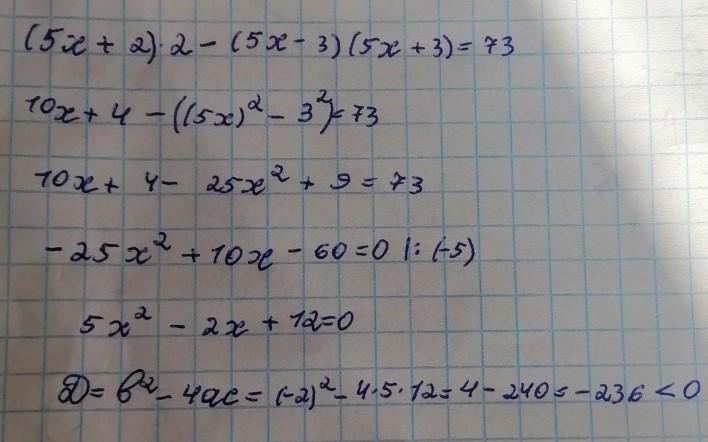 (5x + 2)·2 - (5x - 3)(5x + 3) = 73
10x + 4 - ((5x)² - 3²) = 73
10x + 4 - 25x² + 9 = 73
-25x² + 10x - 60 = 0 |: (-5)
5x² - 2x + 12 = 0
D = b² - 4ac = (-2)² - 4·5·12 = 4 - 240 = -236 < 0